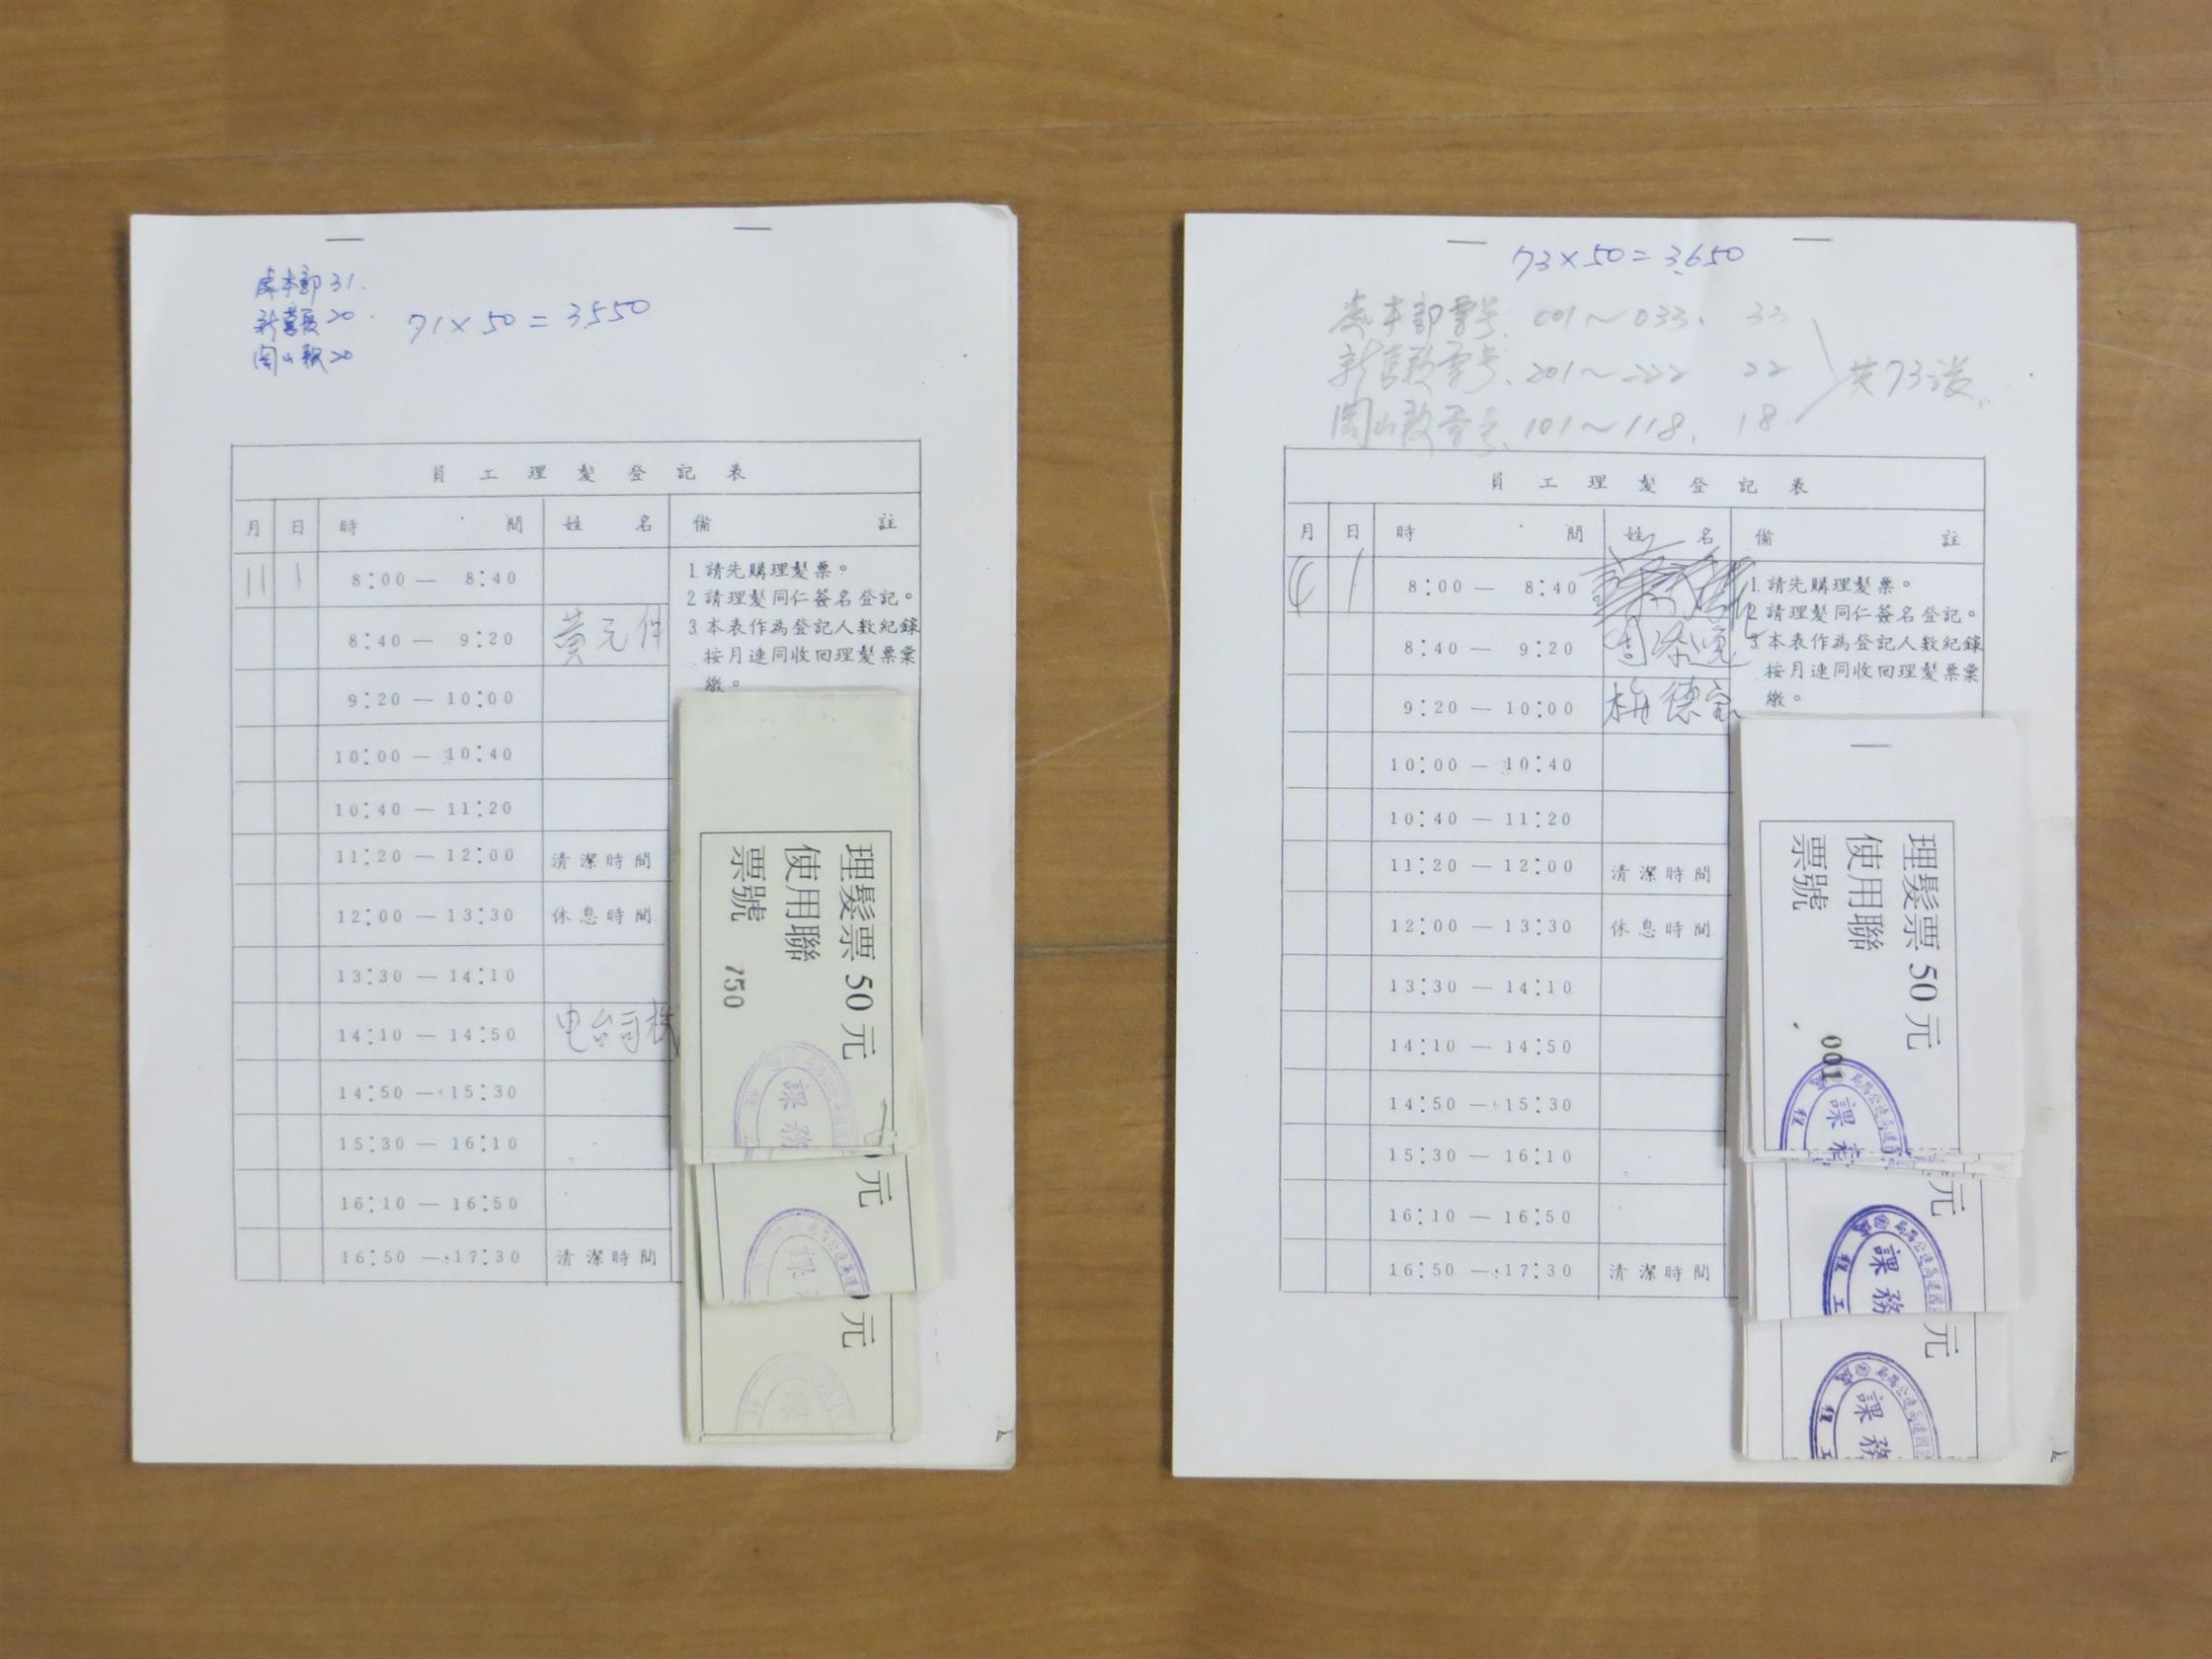 處本部 31.
新營段 20.
岡山段 20
71×50=3550
員工理髮登記表
月 日 時間 姓名 備註
11 1 8:00 — 8:40
8:40 — 9:20 黃元件
9:20 — 10:00
10:00 — 10:40
10:40 — 11:20
11:20 — 12:00 清潔時間
12:00 — 13:30 休息時間
13:30 — 14:10
14:10 — 14:50 电台司機
14:50 — 15:30
15:30 — 16:10
16:10 — 16:50
16:50 — 17:30 清潔時間
1.請先購理髮票。
2.請理髮同仁簽名登記。
3.本表作為登記人數紀錄
按月連同收回理髮票彙
繳。
理髮票50元
使用聯
票號 750
課務
元
課
元
課
73×50=3650
處本部票号. 001~033. 33
新營段票号. 201~222 22
岡山段票号. 101~118. 18
共73張
員工理髮登記表
月 日 時間 姓名 備註
1 8:00 — 8:40
8:40 — 9:20
9:20 — 10:00 梅德家
10:00 — 10:40
10:40 — 11:20
11:20 — 12:00 清潔時間
12:00 — 13:30 休息時間
13:30 — 14:10
14:10 — 14:50
14:50 — 15:30
15:30 — 16:10
16:10 — 16:50
16:50 — 17:30 清潔時間
1.請先購理髮票。
2.請理髮同仁簽名登記。
3.本表作為登記人數紀錄
按月連同收回理髮票彙
繳。
理髮票50元
使用聯
票號 001
課務
工程
元
課務
工程
元
課務
工程